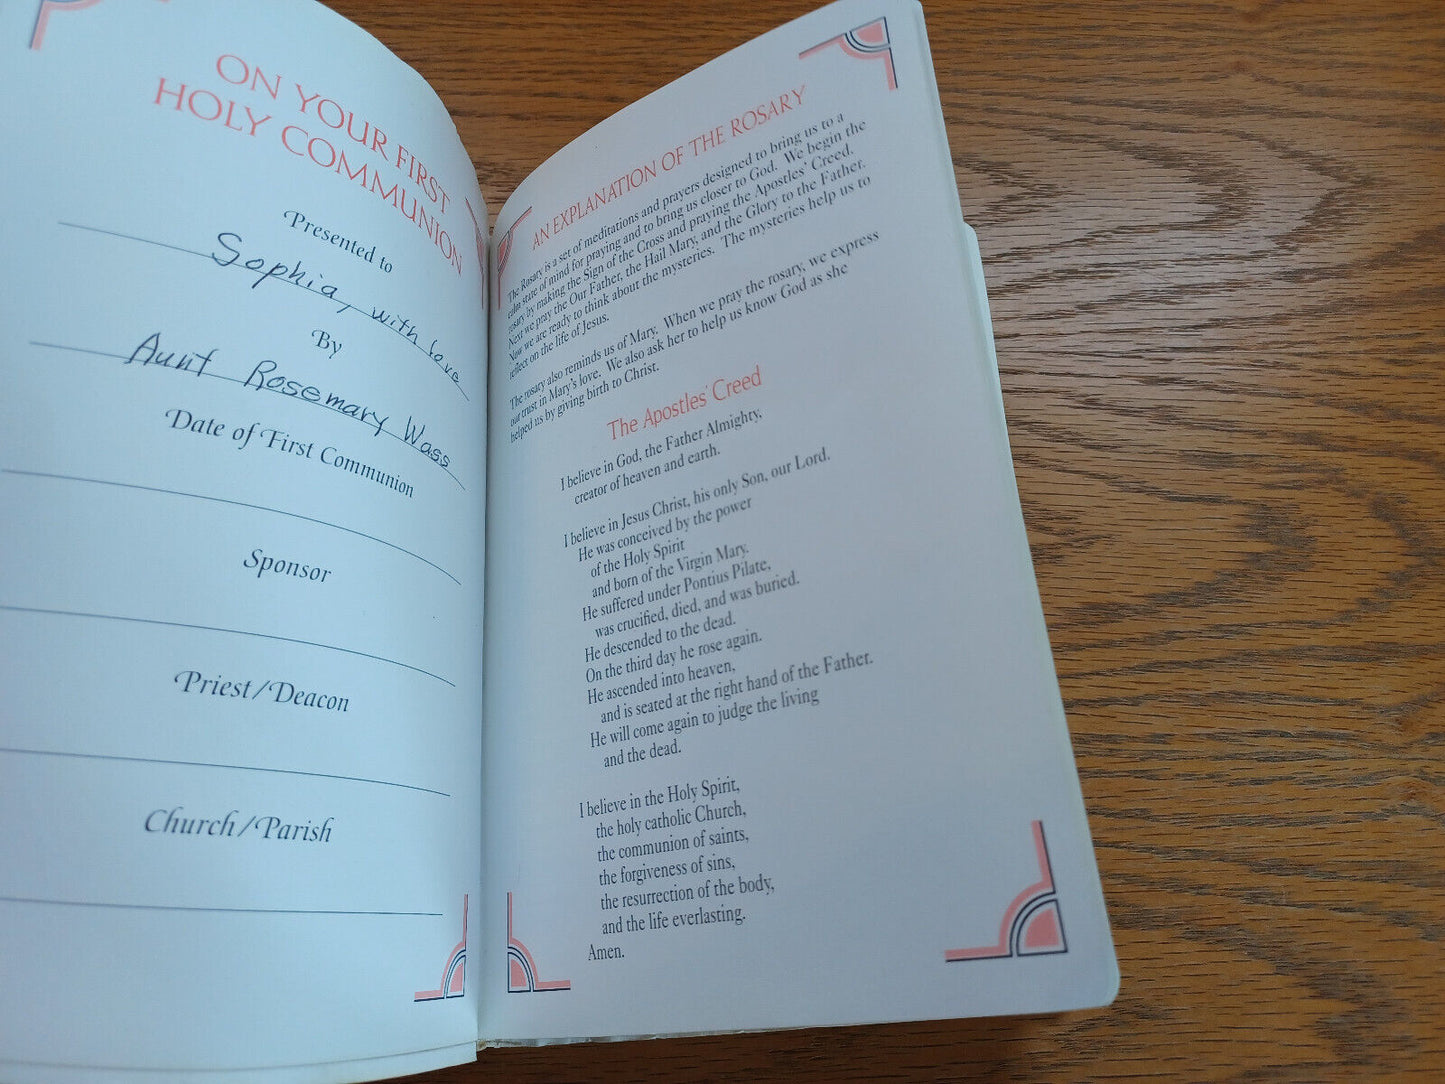 ON YOUR FIRST
HOLY COMMUNION
Presented to
Sophia, with love
By
Aunt Rosemary Wass
Date of First Communion
Sponsor
Priest/Deacon
Church/Parish
AN EXPLANATION OF THE ROSARY
The Rosary is a set of meditations and prayers designed to bring us to a
calm state of mind for praying and to bring us closer to God. We begin the
rosary by making the Sign of the Cross and praying the Apostles' Creed.
Next we pray the Our Father, the Hail Mary, and the Glory to the Father.
Now we are ready to think about the mysteries. The mysteries help us to
reflect on the life of Jesus.
The rosary also reminds us of Mary. When we pray the rosary, we express
our trust in Mary's love. We also ask her to help us know God as she
helped us by giving birth to Christ.
The Apostles' Creed
I believe in God, the Father Almighty,
creator of heaven and earth.
I believe in Jesus Christ, his only Son, our Lord.
He was conceived by the power
of the Holy Spirit
and born of the Virgin Mary.
He suffered under Pontius Pilate,
was crucified, died, and was buried.
He descended to the dead.
On the third day he rose again.
He ascended into heaven,
and is seated at the right hand of the Father.
He will come again to judge the living
and the dead.
I believe in the Holy Spirit,
the holy catholic Church,
the communion of saints,
the forgiveness of sins,
the resurrection of the body,
and the life everlasting.
Amen.